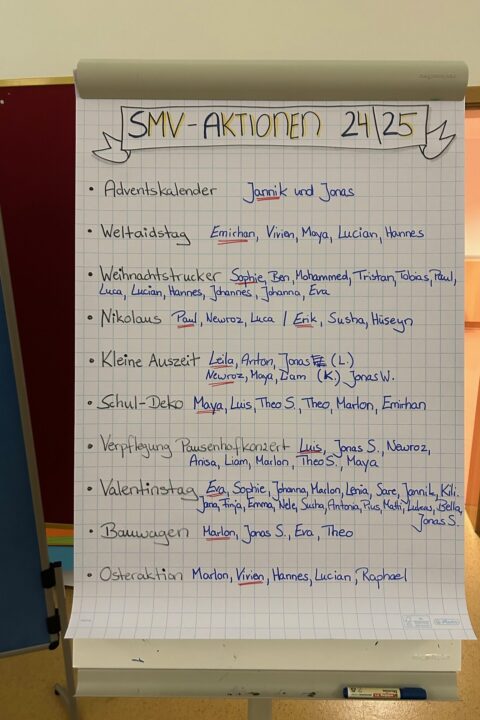 SMV-AKTIONEN 24|25
• Adventskalender Jannik und Jonas
• Weltaidstag Emirhan, Vivien, Maya, Lucian, Hannes
• Weihnachtstrucker Sophie, Ben, Mohammed, Tristan, Tobias, Paul,
Luca, Lucian, Hannes, Johannes, Johanna, Eva
• Nikolaus Paul, Newroz, Luca / Erik, Susha, Hüseyn
• Kleine Auszeit Leila, Anton, Jonas (L.)
Newroz, Maya, Liam (K.) Jonas W.
• Schul-Deko Maya, Luis, Theo S., Theo, Marlon, Emirhan
• Verpflegung Pausenhofkonzert Luis, Jonas S., Newroz,
Anisa, Liam, Marlon, Theo S., Maya
• Valentinstag Eva, Sophie, Johanna, Marlon, Lenia, Sare, Jannik, Kili.
Jana, Finja, Emma, Nele, Susha, Antonia, Pius, Matti, Lukeas, Bella,
Jonas S.
• Bauwagen Marlon, Jonas S., Eva, Theo
• Osteraktion Marlon, Vivien, Hannes, Lucian, Raphael